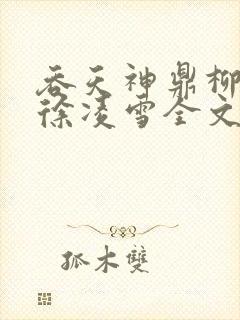 吞天神鼎柳
徐凌雪全文
孤木双